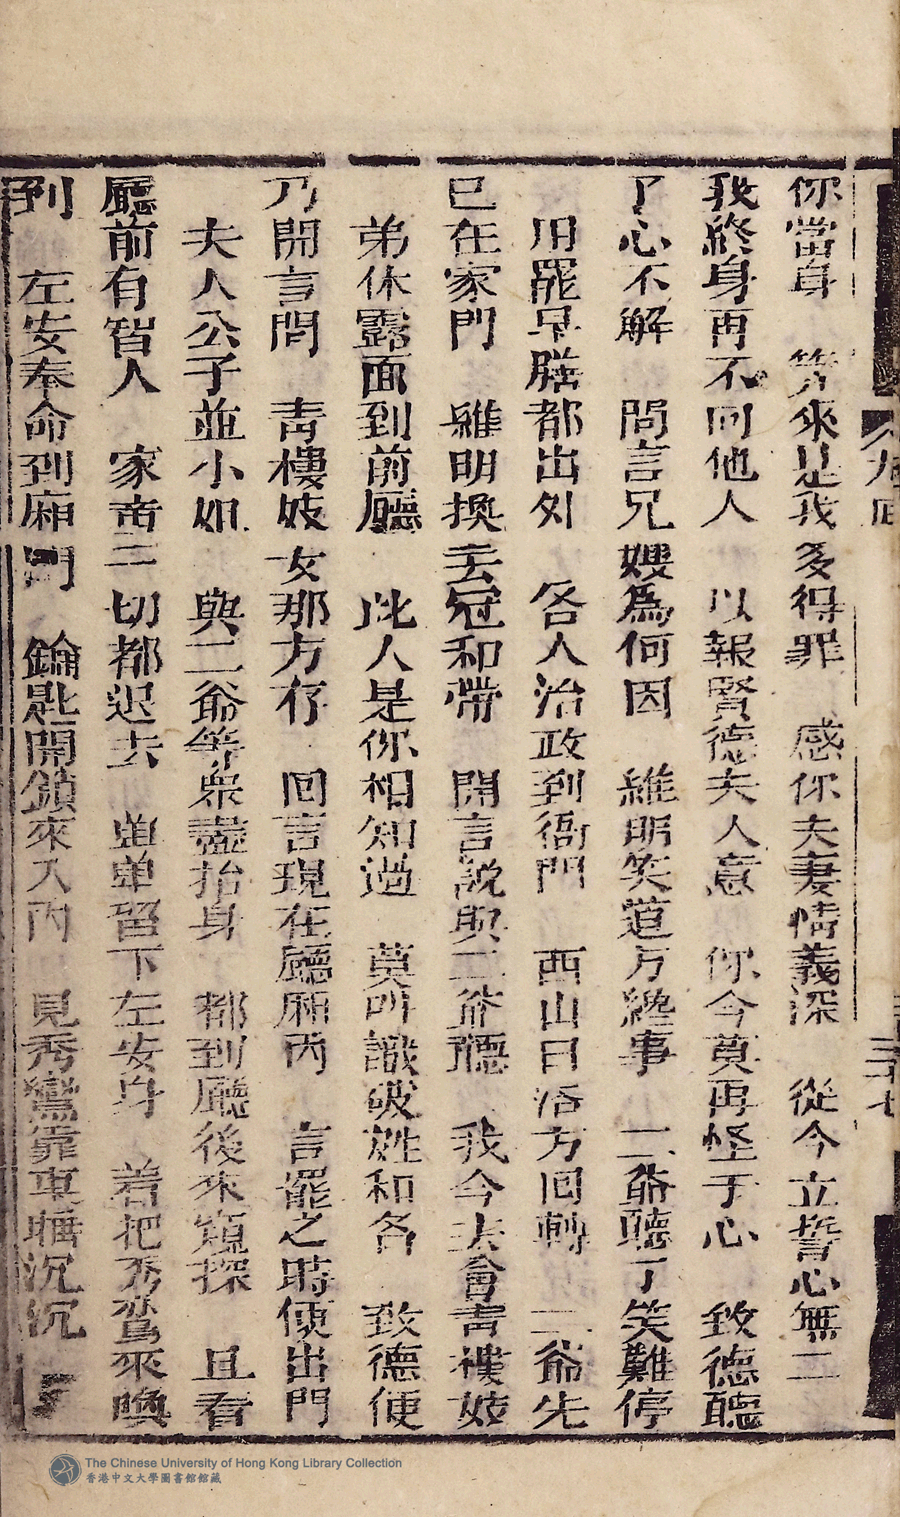 你當身 筭來是我多得罪 感你夫妻情義深 從今立誓心無二
我終身再不同他人 以報賢德夫人意 你今莫再怪于心 致德聽
了心不解 問言兄嫂爲何因 維明笑道万縂事 二爺聽了笑難停
用罷早膳都出外 各人治政到衙門 西山日落方回轉 二爺先
已在家門 維明換去冠和帶 開言說與二爺聽 我今去會青樓妓
弟休露面到前廳 此人是你相知過 莫叫識破姓和名 致德便
乃開言問 青樓妓女那方存 回言現在廳廂內 言罷之時便出門
夫人公子並小姐 與二爺等衆盡抬身 都到廳後來窺探 且看
廳前有智人 家童一切都迟去 單單留下左安身 着把秀鸞來喚
到 左安奉命到廂門 鑰匙開鎖來入內 見秀鸞靠桌睡沉沉
The Chinese University of Hong Kong Library Collection
香港中文大學圖書館館藏